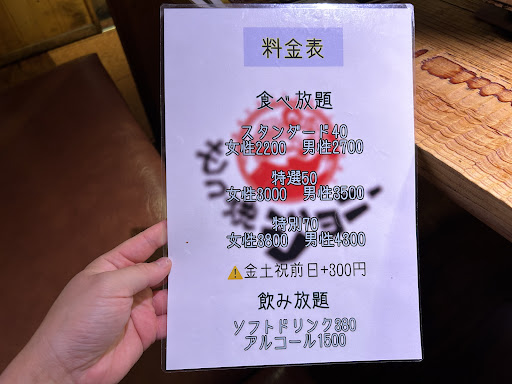 料金表
食べ放題
スタンダード40
女性2200 男性2700
特選50
女性3000 男性3500
特別70
女性3800 男性4300
⚠金土祝前日+300円
飲み放題
ソフトドリンク380
アルコール1500